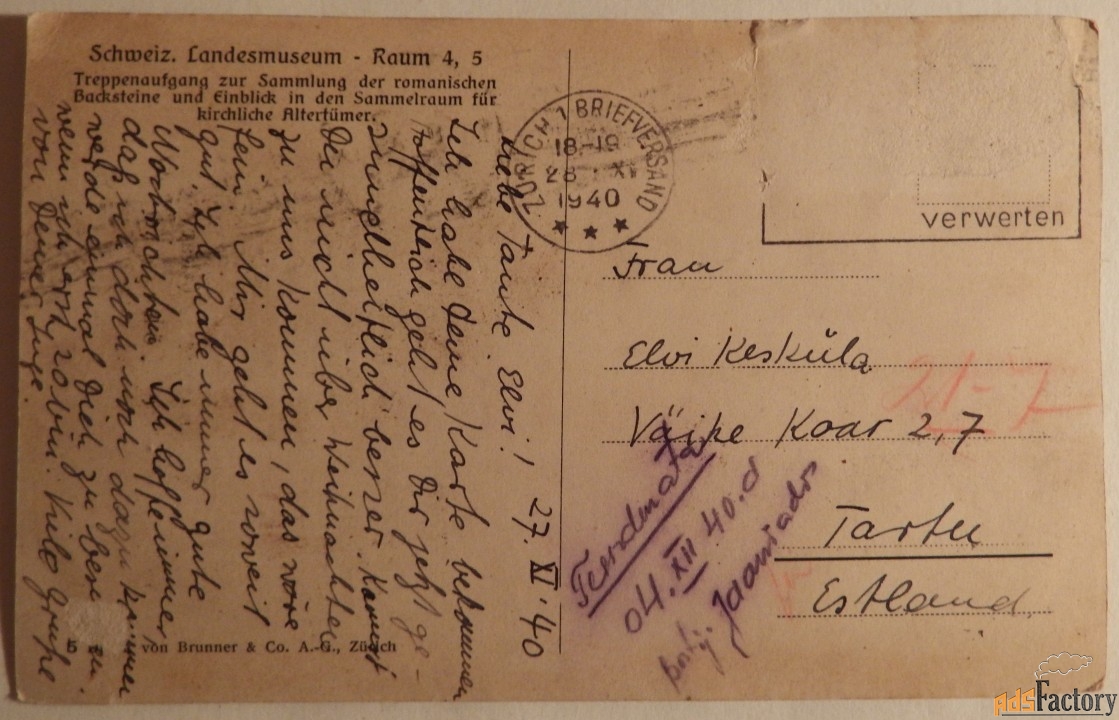 Schweiz. Landesmuseum - Raum 4, 5
Treppenaufgang zur Sammlung der romanischen
Backsteine und Einblick in den Sammelraum für
kirchliche Altertümer.
27. XI 40
Liebe Tante Elvi!
Ich habe Deine Karte bekommen
Hoffentlich geht es Dir jetzt ge-
sundheitlich besser. Kannst
Du nicht über Weihnachten
zu uns kommen, das wäre
fein. Mir geht es soweit
gut. Ich habe immer gute
Ich hoffe immer
daß ich doch noch dazu komme
werde einmal Dich zu
wenn ich erst 20 bin. Viele Grüsse
von Deiner Inge.
von Brunner & Co. A.-G., Zürich
ZÜRICH 1 BRIEFVERSAND
18-19
28 XI
1940
verwerten
Frau
Elvi Kesküla
Väike Kaar 2, 7
Tartu
Estland
21-7
Tundmata
04. XII 40. a
AdsFactory